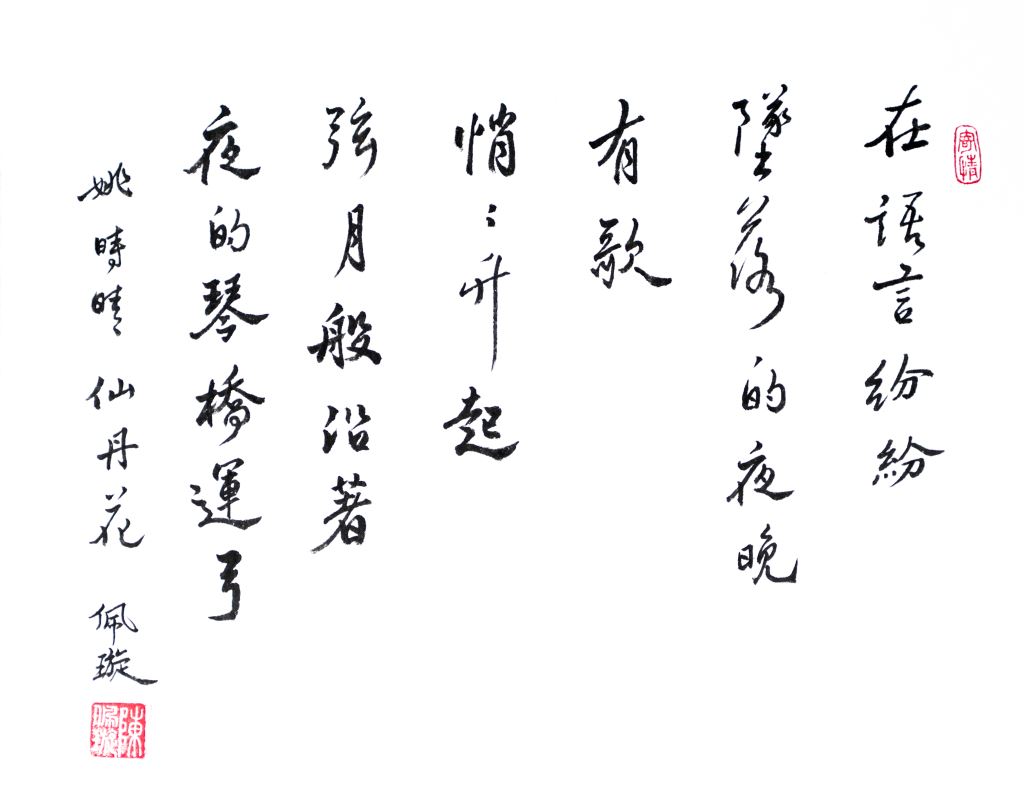 在語言紛紛
墜落的夜晚
有歌
悄〻升起
弦月般沿著
夜的琴橋運弓
姚時晴 仙丹花 佩璇
寄情
陳佩璇